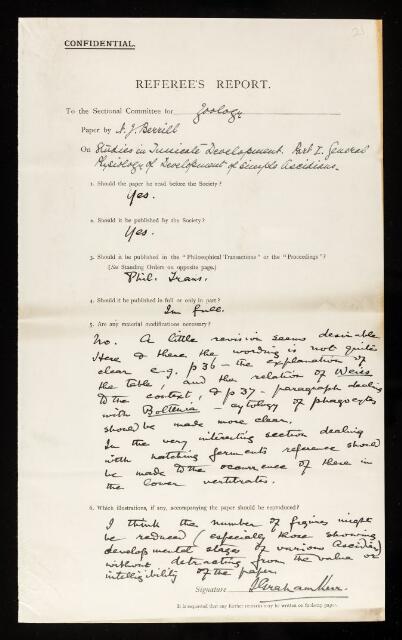 21
CONFIDENTIAL.
REFEREE'S REPORT.
To the Sectional Committee for Zoology
Paper by N. J. Berrill
On Studies in Tunicate Development. Part I. General
Physiology of Development of Simple Ascidians.
1. Should the paper be read before the Society?
Yes.
2. Should it be published by the Society?
Yes.
3. Should it be published in the "Philosophical Transactions" or the "Proceedings"?
(See Standing Orders on opposite page.)
Phil. Trans.
4. Should it be published in full or only in part?
In full.
5. Are any material modifications necessary?
No. A little revision seems desirable
Here & there the wording is not quite
clear e.g. p 36 – the explanation of
the table, and the relation of Weiss
to the context, & p 37 – paragraph dealing
with Boltenia – cytology of phagocytes
should be made more clear.
In the very interesting section dealing
with hatching ferments reference should
be made to the occurrence of these in
the lower vertebrates.
6. Which illustrations, if any, accompanying the paper should be reproduced?
I think the number of figures might
be reduced (especially those showing
developmental stages of various Ascidians)
without detracting from the value or
intelligibility of the paper.
Signature J Graham Kerr.
It is requested that any further remarks may be written on the following pages.